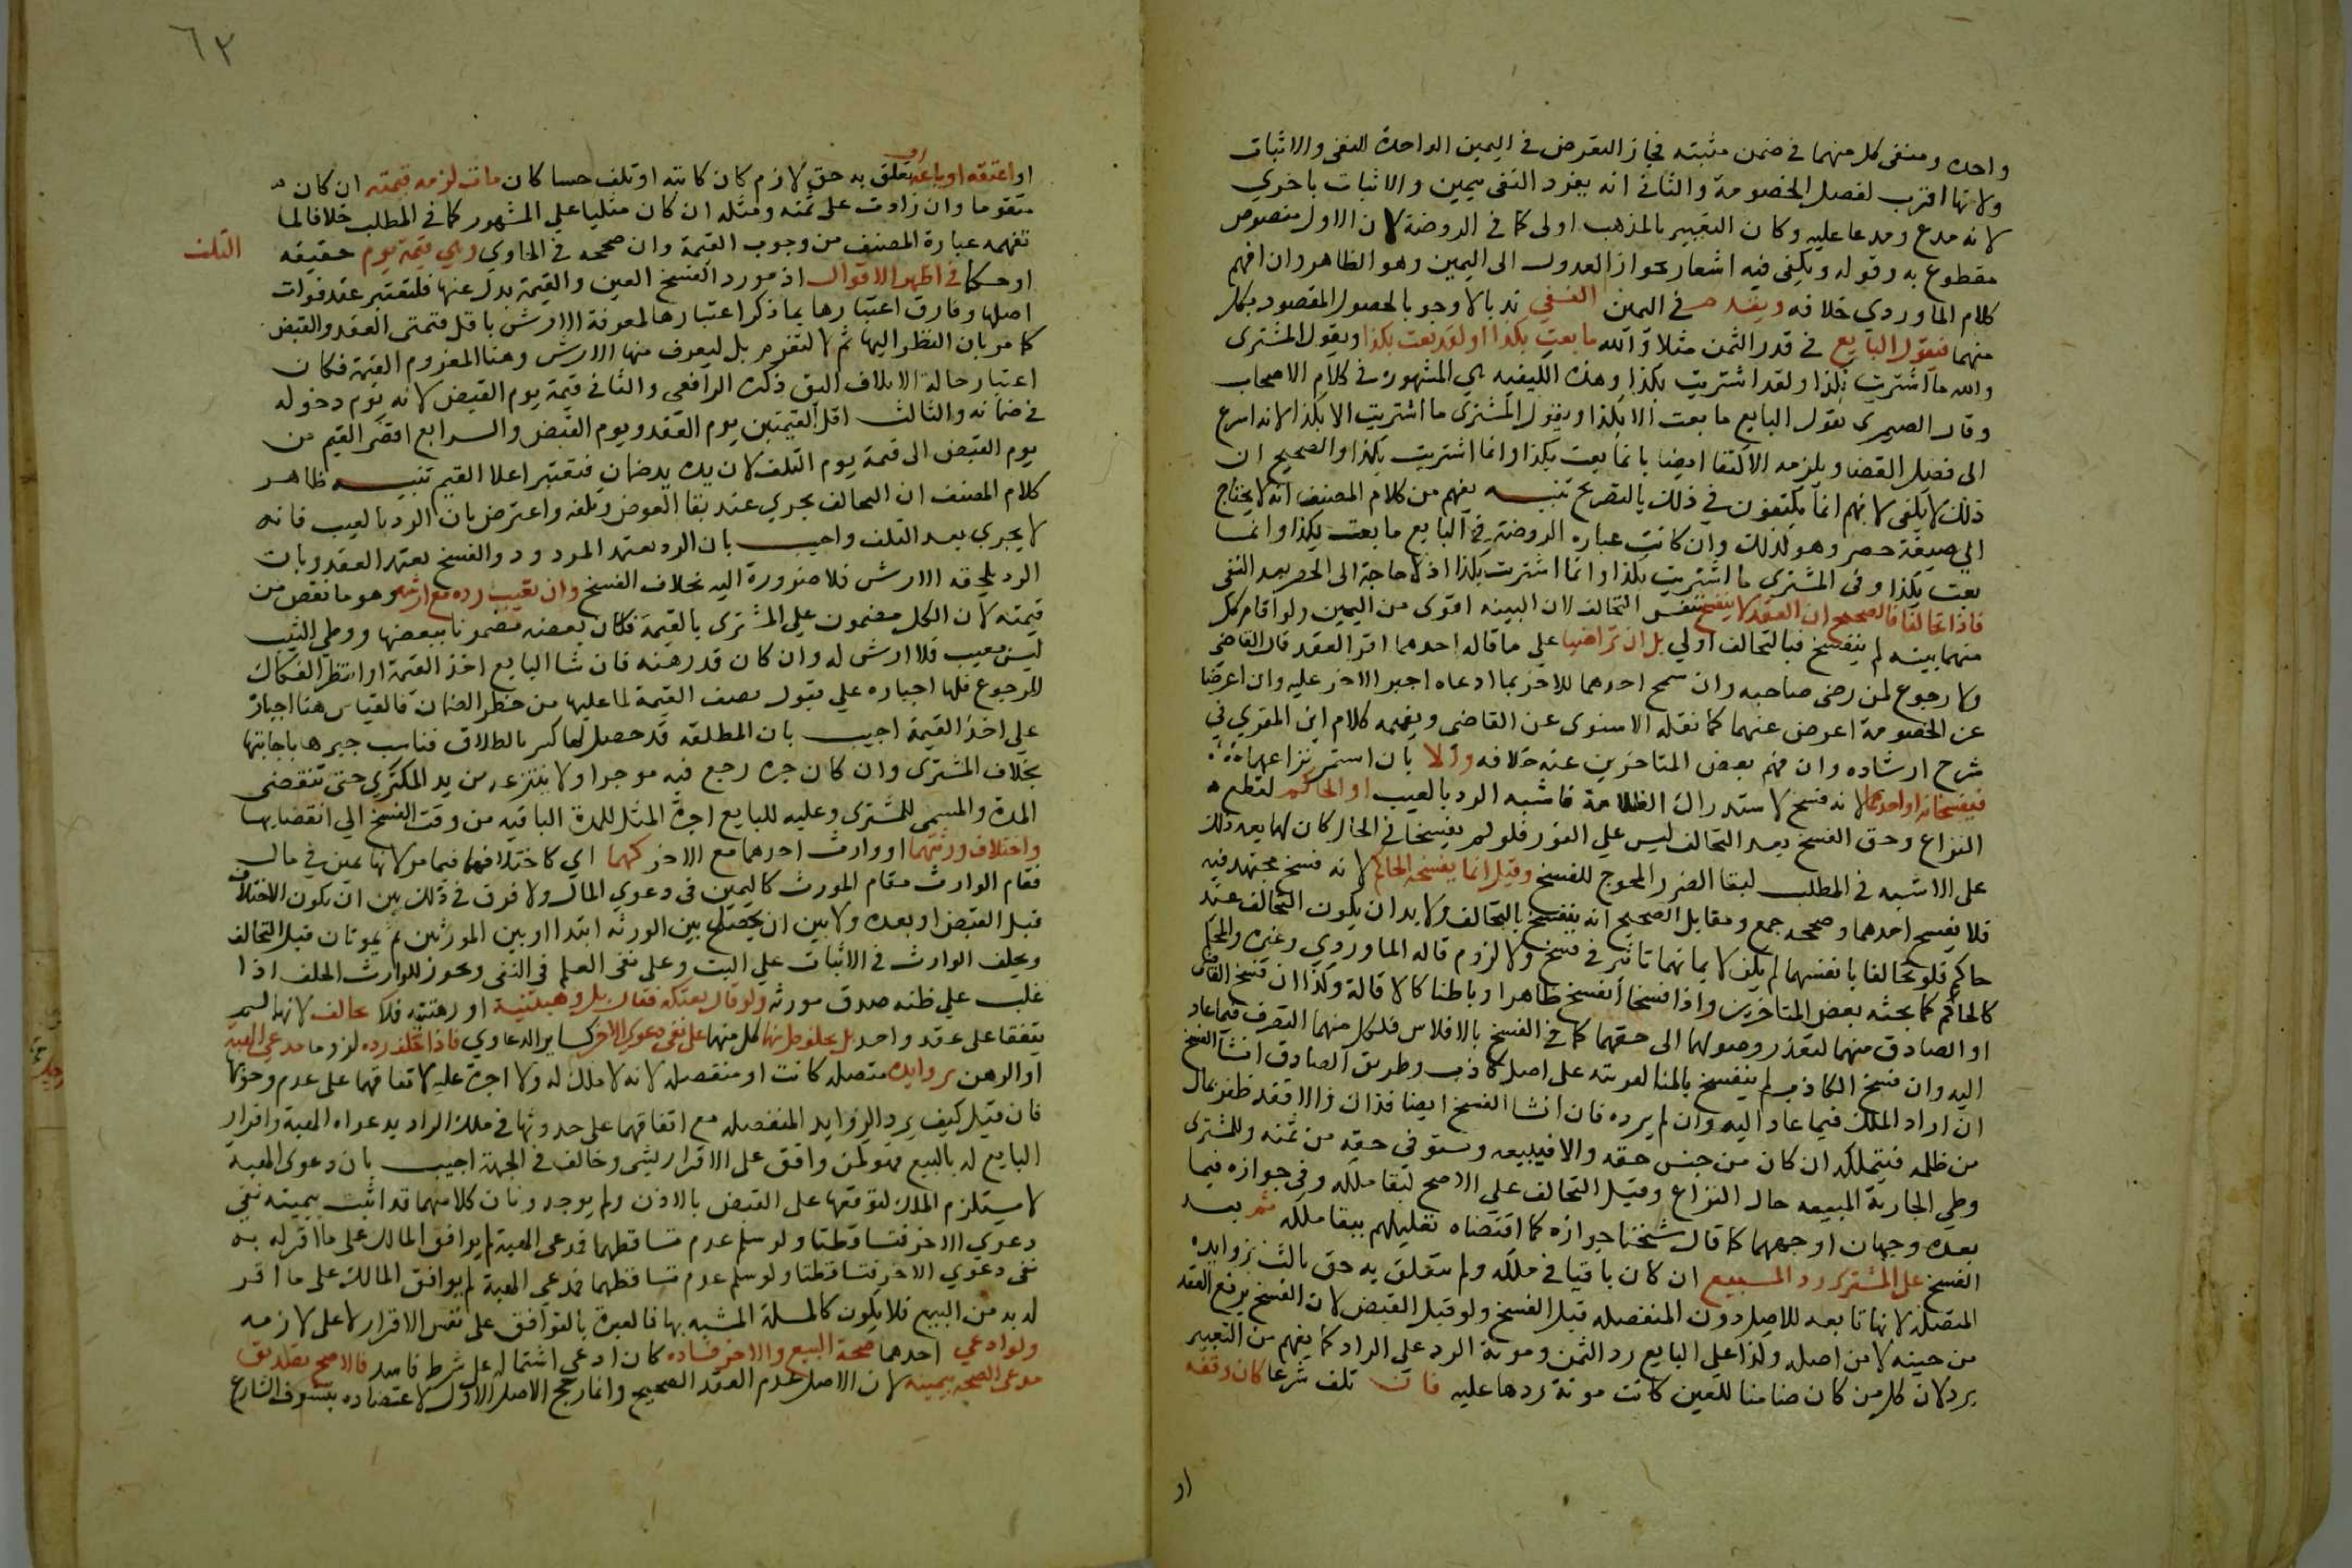 واحده ومنفى كل منهما في ضمن مثبته فجاز التعرض في اليمين الواحدة للنفى والاثبات
ولانها اقرب لفصل الخصومة والثاني انه يفرد النفى بيمين والاثبات باخري
لانه مدع ومدعا عليه وكان التعبير بالمذهب اولى كما في الروضة لان الاول منصوص
مقطوع به وقوله ويكفي فيه اشعار بجواز العدول الى اليمين وهو الظاهر وان افهم
كلام الماوردي خلافه ويقدم في اليمين النفي ندبا لا وجوبا لحصول المقصود بكل
منهما فيقول البايع في قدر الثمن مثلا والله ما بعت بكذا ولقد بعت بكذا ويقول المشترى
والله ما اشتريت بكذا ولقد اشتريت بكذا وهذه الكيفيه هي المشهورة في كلام الاصحاب
وقال الصيمرى يقول البايع ما بعت الا بكذا ويقول المشترى ما اشتريت الا بكذا لانه اسرع
الى فصل القضا ويلزمه الاكتفا ايضا بانما بعت بكذا وانما اشتريت بكذا والصحيح ان
ذلك لا يكفى لانهم انما يكتفون في ذلك بالتصريح تنبيه يفهم من كلام المصنف انه لا يحتاج
الي صيغة حصر وهو كذلك وان كانت عباره الروضة في البايع ما بعت بكذا وانما
بعت بكذا وفى المشترى ما اشتريت بكذا وانما اشتريت بكذا اذ لا حاجة الى الحصر بعد النفي
فاذا تحالفا فالصحيح ان العقد لا ينفسخ بنفس التحالف لان البينه اقوى من اليمين ولو اقام كل
منهما بينه لم ينفسخ فبالتحالف اولي بل ان تراضيا على ما قاله احدهما اقر العقد قال القاضي
ولا رجوع لمن رضى صاحبه وان سمح احدهما للاخر بما ادعاه اجبر الاخر عليه وان اعرضا
عن الخصومة اعرض عنهما كما نقله الاسنوى عن القاضى ويفهمه كلام ابن المقري في
شرح ارشاده وان فهم بعض المتاخرين عنه خلافه والا بان استمر نزاعهما
فيفسخانه او احدهما لانه فسخ لاستدراك الظلامة فاشبه الرد بالعيب او الحاكم لقطع
النزاع وحق الفسخ بعد التحالف ليس علي الفور فلو لم يفسخا في الحال كان لهما بعد ذلك
على الاشبه في المطلب لبقا الضرر المحوج للفسخ وقيل انما يفسخه الحاكم لانه فسخ مجتهد فيه
فلا يفسخ احدهما وصححه جمع ومقابل الصحيح انه ينفسخ بالتحالف ولا بد ان يكون التحالف عند
حاكم فلو تحالفا بانفسهما لم يكن لايمانهما تاثير في فسخ ولا لزوم قاله الماوردي وغيره والمحكم
كالحاكم كما بحثه بعض المتاخرين واذا فسخا انفسخ ظاهرا وباطنا كالاقالة وكذا ان فسخ القاضى
او الصادق منهما لتعذر وصولهما الى حقهما كما في الفسخ بالافلاس فلكل منهما التصرف فيما عاد
اليه وان فسخ الكاذب لم ينفسخ باطنا لترتبه على اصل كاذب وطريق الصادق انشا الفسخ
ان اراد الملك فيما عاد اليه وان لم يرده فان انشا الفسخ ايضا فذاك والا فقد ظفر بمال
من ظلمه فيتملكه ان كان من جنس حقه والا فيبيعه ويستوفى حقه من ثمنه وللمشترى
وطي الجارية المبيعه حال النزاع وقبل التحالف علي الاصح لبقا ملكه وفي جوازه فيما
بعده وجهان اوجههما كما قال شيخنا جوازه كما اقتضاه تعليلهم ببقا ملكه ثم بعد
الفسخ على المشترى رد المبيع ان كان باقيا في ملكه ولم يتعلق به حق ثالث بزوايده
المتصلة لانها تابعه للاصل دون المنفصله قبل الفسخ ولو قبل القبض لان الفسخ يرفع العقد
من حينه لا من اصله وكذا علي البايع رد الثمن ومونة الرد على الراد كما يفهم من التعبير
برد لان كل من كان ضامنا للعين كانت مونة ردها عليه فان تلف شرعا كان وقفه
او
٦٢
او اعتقه او باعه او تعلق به حق لازم كان كاتبه او تلف حسا كان مات لزمه قيمته ان كان
متقوما وان زادت على ثمنه ومثله ان كان مثليا علي المشهور كما في المطلب خلافا لما
تفهمه عبارة المصنف من وجوب القيمة وان صححه في الحاوي وهي قيمة يوم حقيقه
التلف
او حكما في اظهر الاقوال اذ مورد الفسخ العين والقيمة بدل عنها فلتعتبر عند فوات
اصلها وفارق اعتبارها بما ذكر اعتبارها لمعرفة الارش باقل قيمتى العقد والقبض
كما مر بان النظر اليها ثم لا لتغرم بل ليعرف منها الارش وهنا المغروم القيمة فكان
اعتبار حالة الاتلاف اليق ذكره الرافعي والثاني قيمة يوم القبض لانه يوم دخوله
في ضمانه والثالث اقل القيمتين يوم العقد ويوم القبض والرابع اقصى القيم من
يوم القبض الى قيمة يوم التلف لان يده يد ضمان فتعتبر اعلا القيم تنبيه ظاهر
كلام المصنف ان التحالف يجري عند بقا العوض وتلفه واعترض بان الرد بالعيب فانه
لا يجري بعد التلف واجيب بان الرد يعتمد المردود والفسخ يعتمد العقد وبان
الرد يلحقه الارش فلا ضرورة اليه بخلاف الفسخ وان تعيب رده مع ارشه وهو ما نقص من
قيمته لان الكل مضمون علي المشترى بالقيمة فكان بعضه مضمونا ببعضها ووطي الثيب
ليس بعيب فلا ارش له وان كان قد رهنه فان شا البايع اخذ القيمة او انتظر الفكاك
للرجوع فلها اجباره علي قبول نصف القيمة لما عليها من خطر الضمان فالقياس هنا اجباره
علي اخذ القيمة اجيب بان المطلقه قد حصل لها كسر بالطلاق فناسب جبرها باجابتها
بخلاف المشترى وان كان اجره رجع فيه موجرا ولا ينتزعه من يد المكترى حتى تنقضى
المدة والمسمى للمشترى وعليه للبايع اجرة المثل للمدة الباقيه من وقت الفسخ الي انقضايها
واختلاف ورثتهما او وارث احدهما مع الاخر كهما اي كاختلافهما فيما مر لانها يمين في مال
فقام الوارث مقام المورث كاليمين في دعوي المال ولا فرق في ذلك بين ان يكون الاختلاف
قبل القبض او بعده ولا بين ان يحصل بين الورثه ابتدا او بين المورثين ثم يموتان قبل التحالف
ويحلف الوارث في الاثبات علي البت وعلى نفى العلم في النفى ويجوز للوارث الحلف اذا
غلب علي ظنه صدق مورثه ولو قال بعتكه فقال بل وهبتنيه او رهنتنيه فلا تحالف لانهما لم
يتفقا على عقد واحد بل يحلف كل منهما على نفى دعوى الاخر كساير الدعاوي فاذا حلفا رده لزوما مدعى الهبة
او الرهن بزوايده متصله كانت او منفصله لانه لا ملك له ولا اجرة عليه لاتفاقهما على عدم وجوبها
فان قيل كيف يرد الزوايد المنفصله مع اتفاقهما على حدوثها في ملك الراد بدعواه الهبة واقرار
البايع له بالبيع فهو كمن وافق على الاقرار بشى وخالف في الجهة اجيب بان دعوى الهبة
لا يستلزم الملك لتوقفها على القبض بالاذن ولم يوجد وبان كلا منهما قد اثبت بيمينه نفي
دعوي الاخر فتساقطتا ولو سلم عدم تساقطهما فمدعى الهبة لم يوافق المالك على ما اقر له به
نفى دعوي الاخر فتساقطتا ولو سلم عدم تساقطهما فمدعى الهبة لم يوافق المالك على ما اقر
له به من البيع فلا يكون كالمسلة المشبه بها فالعبرة بالتوافق على نفس الاقرار لا على لازمه
ولو ادعي احدهما صحة البيع والاخر فساده كان ادعي اشتماله على شرط فاسد فالاصح تصديق
مدعى الصحه بيمينه لان الاصل عدم العقد الصحيح وانما رجح الاصل الاول لاعتضاده بتشوف الشارع